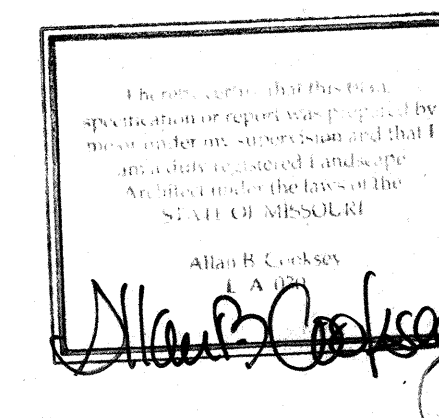 I hereby certify that this plan,
specification or report was prepared by
me or under my supervision and that I
am a duly registered Landscape
Architect under the laws of the
STATE OF MISSOURI
Allan B. Cooksey
L A 020
Allan B Cooksey